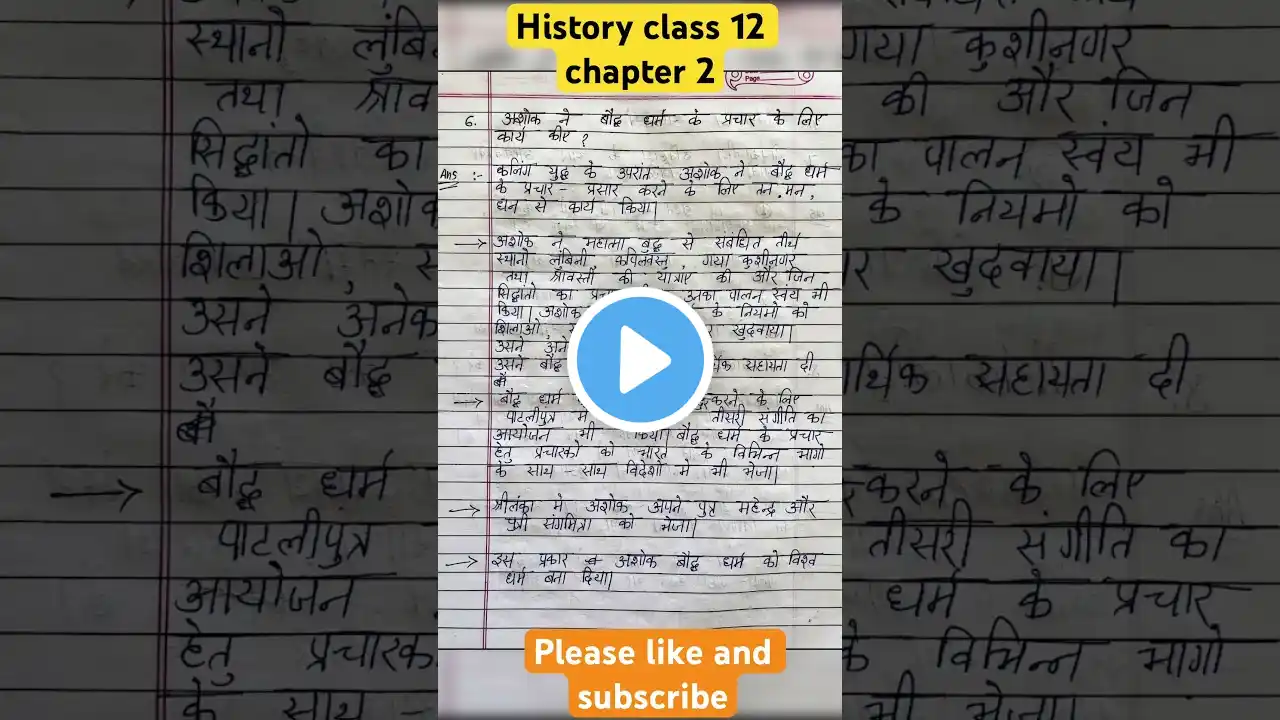 History class 12
chapter 2
Page
6. अशोक ने बौद्ध धर्म के प्रचार के लिए
कार्य कीए ?
Ans :- कलिंग युद्ध के उपरांत अशोक ने बौद्ध धर्म
के प्रचार - प्रसार करने के लिए तन, मन,
धन से कार्य किया।
→ अशोक ने महात्मा बुद्ध से संबंधित तीर्थ
स्थानो लुंबिनी कपिलवस्तु, गया कुशीनगर
तथा श्रावस्ती की यात्राए की और जिन
सिद्धांतो का उनका पालन स्वंय भी
किया। अशोक के नियमो को
शिलाओ, खुदवाया।
उसने अनेक
उसने बौद्ध आर्थिक सहायता दी
→ बौद्ध धर्म करने के लिए
पाटलीपुत्र में तीसरी संगीति का
आयोजन भी किया। बौद्ध धर्म के प्रचार
हेतु प्रचारको को भारत के विभिन्न भागो
के साथ - साथ विदेशो मे भी भेजा।
→ श्रीलंका मे अशोक अपने पुत्र महेन्द्र और
पुत्री संगमित्रा को भेजा।
→ इस प्रकार अशोक बौद्ध धर्म को विश्व
धर्म बना दिया।
Please like and
subscribe